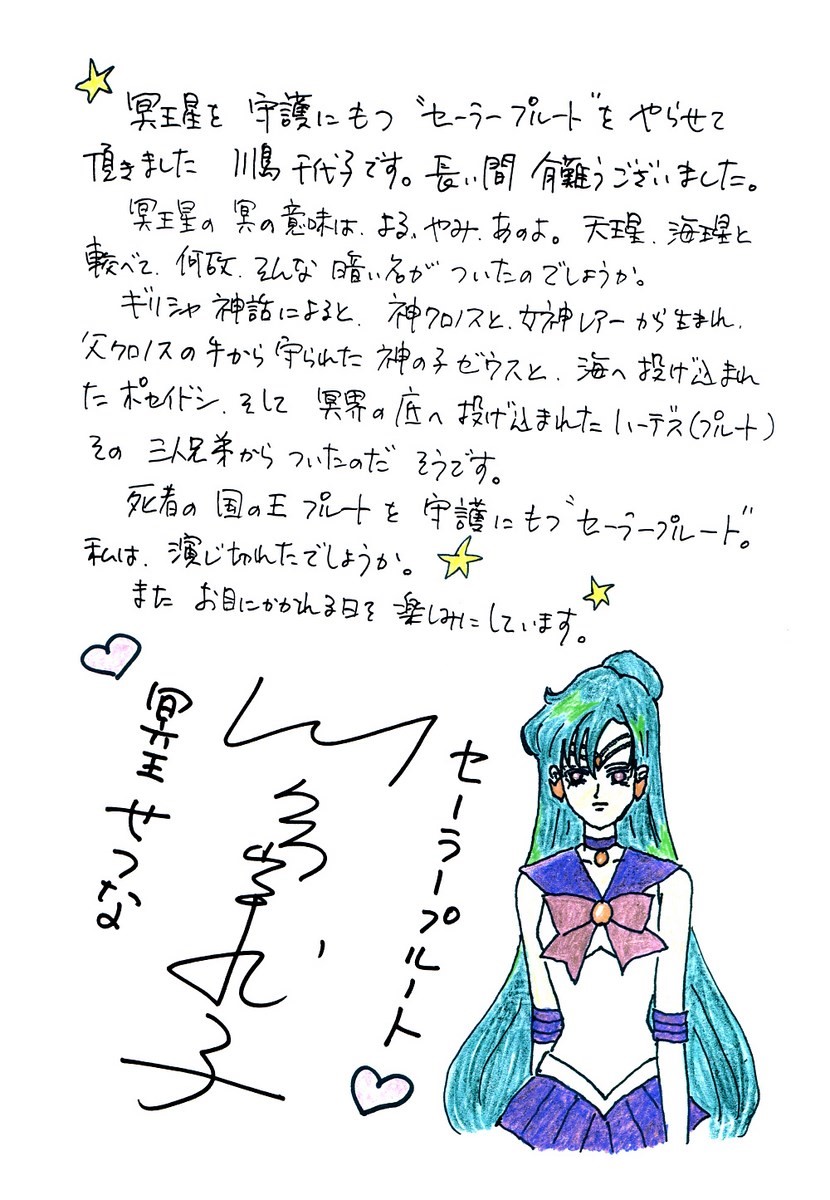 冥王星を 守護にもつ “セーラープルート”を やらせて
頂きました 川島 千代子です。長い間 有難うございました。
冥王星の 冥の意味は、よる、やみ、あのよ。天王星、海王星と
較べて、何故、そんな 暗い名が ついたのでしょうか。
ギリシャ 神話によると、神クロノスと、女神レアーから生まれ、
父クロノスの手から 守られた 神の子 ゼウスと、海へ 投げ込まれ
た ポセイドン、そして 冥界の底へ 投げ込まれた ハーデス(プルート)
その 三人兄弟から ついたのだ そうです。
死者の 国の王 プルートを 守護にもつ “セーラープルート”。
私は、演じ切れたでしょうか。
また お目にかかれる日を 楽しみにしています。
セーラープルート
川島千代子
冥王せつな